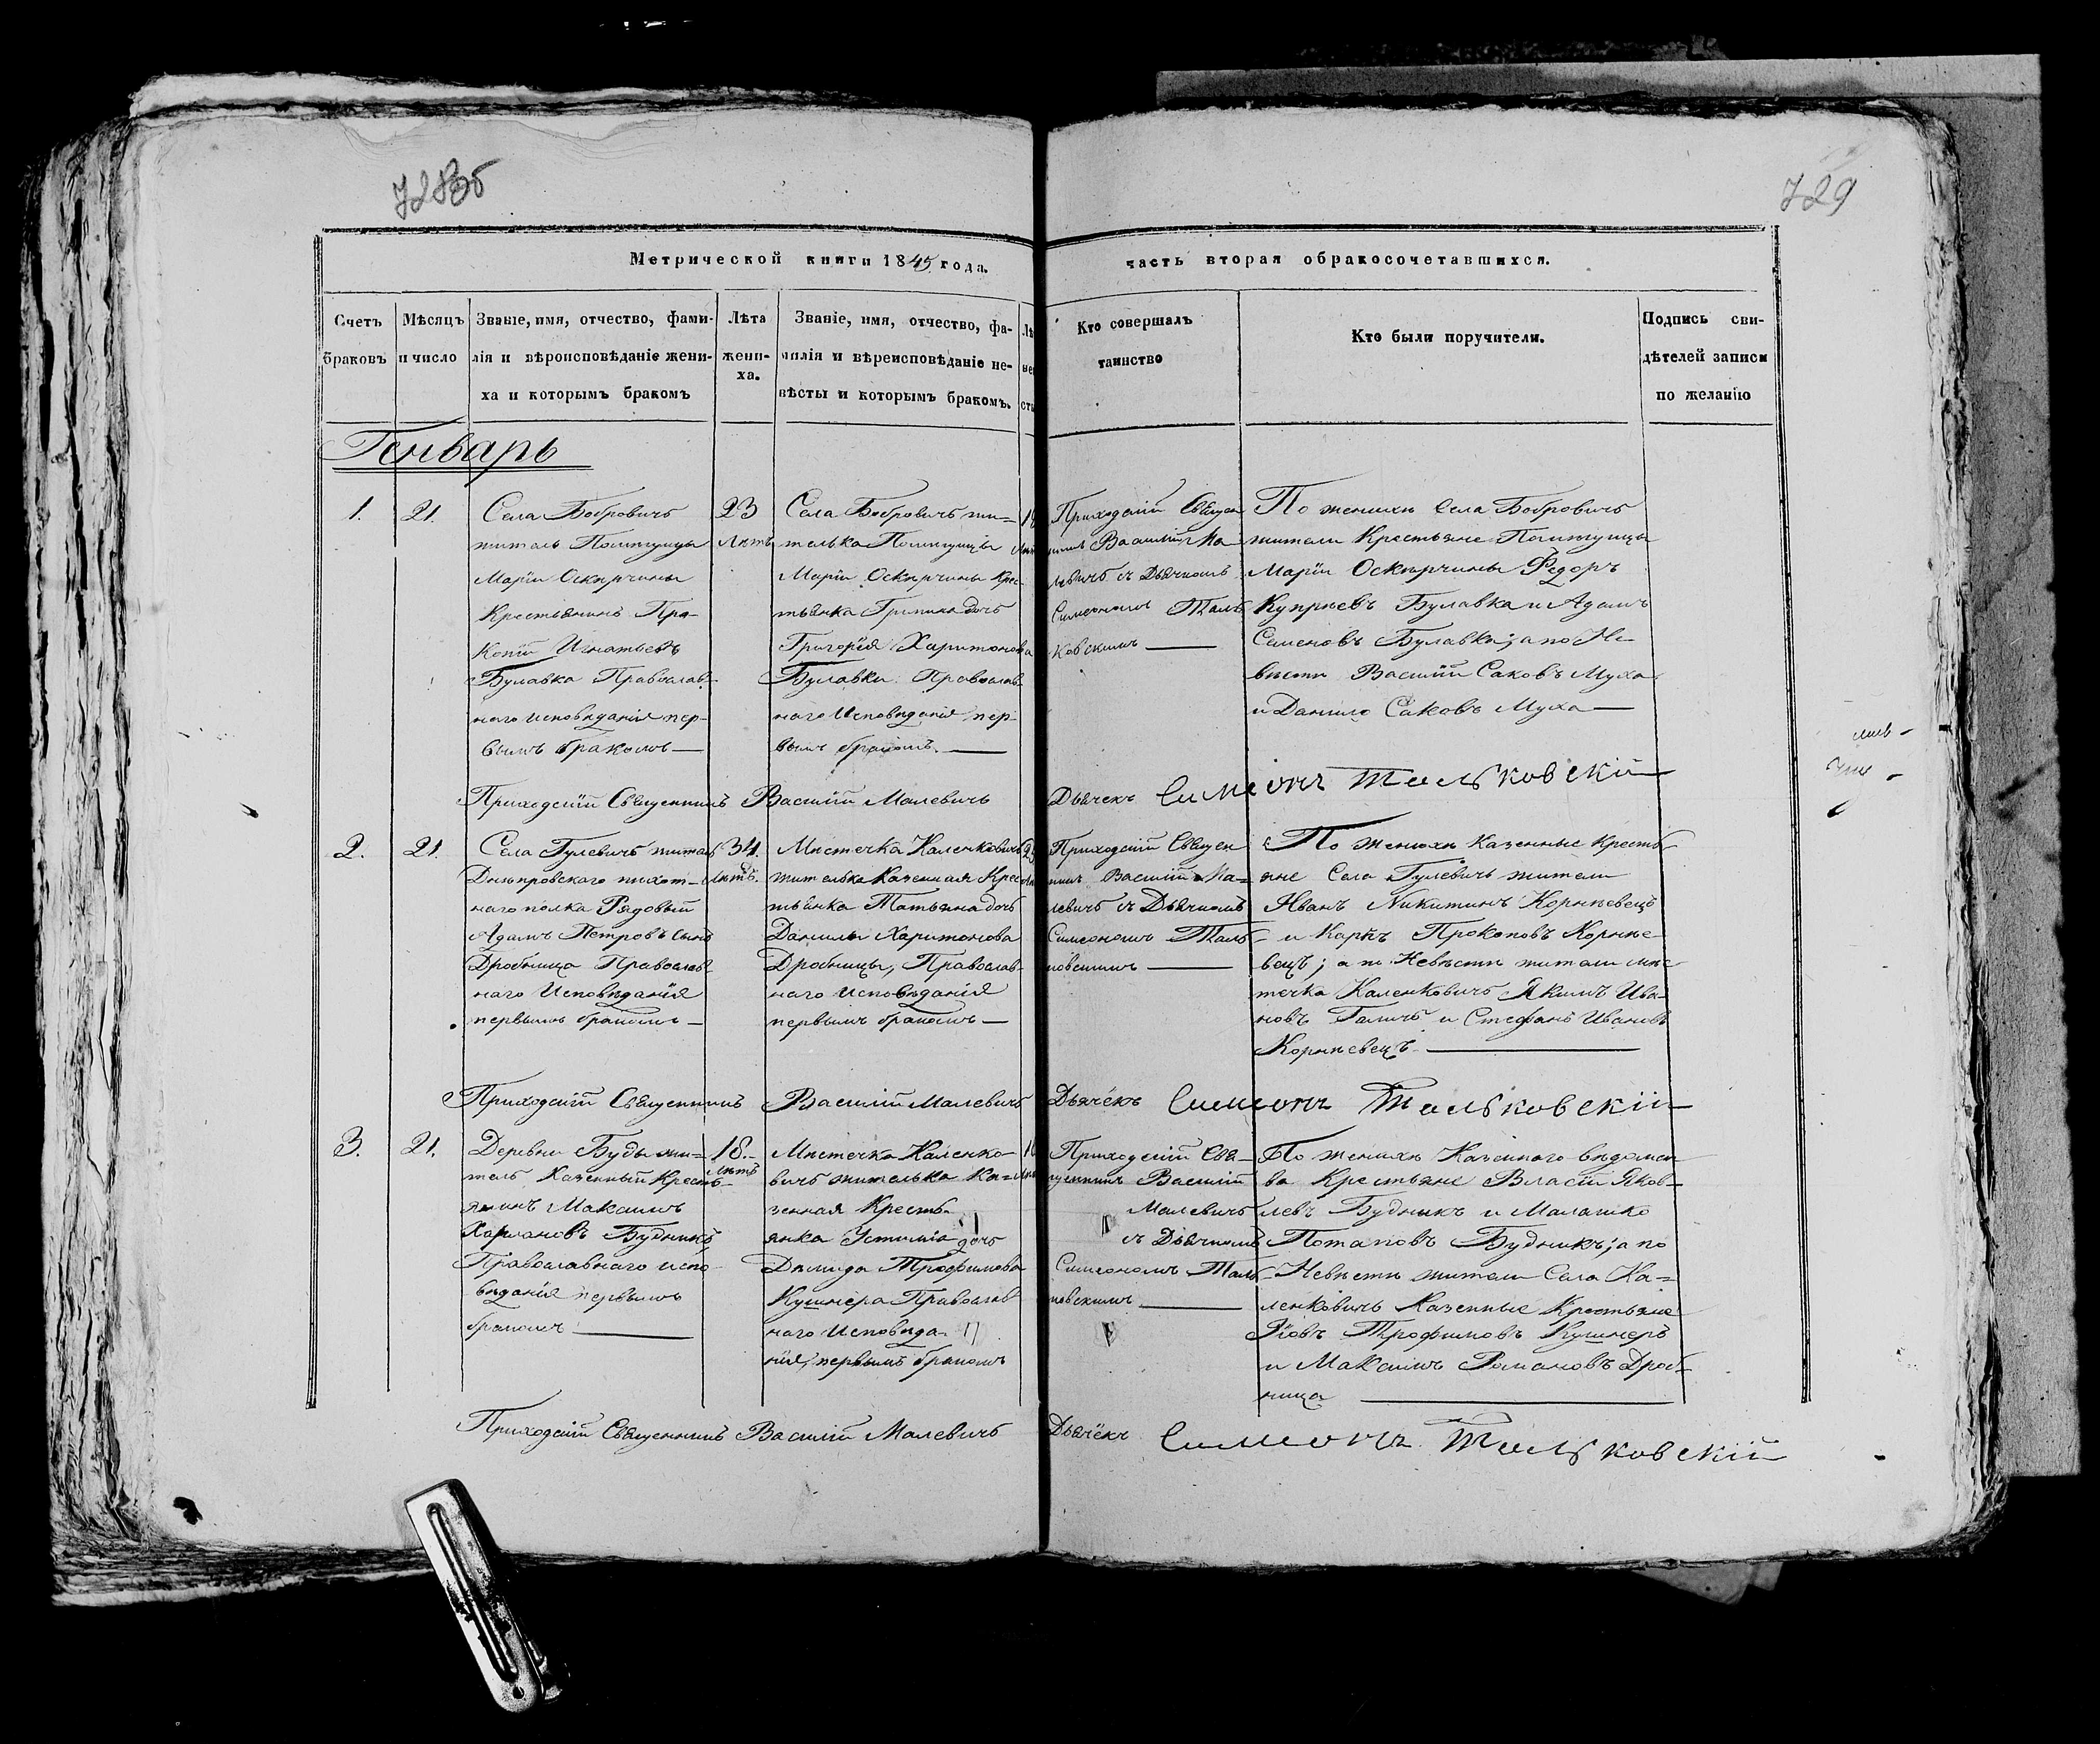 728об
729
Метрической книги 1845 года.
часть вторая обракосочетавшихся.
Счетъ браковъ
Мѣсяцъ и число
Званіе, имя, отчество, фами-
лія и вѣроисповѣданіе жени-
ха и которымъ бракомъ
Лѣта
жени-
ха.
Званіе, имя, отчество, фа-
милія и вѣреисповѣданіе не-
вѣсты и которымъ бракомъ.
Кто совершалъ
таинство
Кто были поручители.
Подпись сви-
дѣтелей записи
по желанію
Генварь
1.
21.
Села Бобровичъ
житель Помѣщицы
Маріи Оскѣрчины
Крестьянинъ Про-
копій Игнатьевъ
Булавка Православ-
наго исповѣданія пер-
вымъ бракомъ
23
лѣтъ
Села Бобровичъ жи-
телька Помѣщицы
Маріи Оскѣрчины Крес-
тьянка Грипина дочь
Григорія Харитонова
Булавки Православ-
наго Исповѣданія пер-
вымъ бракомъ.
Приходскій Священ
никъ Василій Ма-
левичъ съ Дьячкомъ
Симеономъ Таль
ковскимъ
По женихѣ Села Бобровичъ
жители Крестьяне Помѣщицы
Маріи Оскѣрчины Федоръ
Купрѣевъ Булавка и Адамъ
Семеновъ Булавка; а по Не-
вѣстѣ Василій Саковъ Муха
и Данило Саковъ Муха
Приходскій Священникъ Василій Малевичъ
Дьячекъ Симеонъ Тальковскій
2.
21.
Села Гулевичъ житель
Днѣпровскаго пѣхот-
наго полка Рядовый
Адамъ Петровъ сынъ
Дробница Православ-
наго Исповѣданія
первымъ бракомъ
34.
лѣтъ.
Мѣстечка Каленковичъ
жителька Казенная Крес
тьянка Татьяна дочь
Данилы Харитонова
Дробницы, Православ-
наго исповѣданія
первымъ бракомъ
Приходскій Священ
никъ Василій Ма-
левичъ съ Дьячкомъ
Симеономъ Таль-
ковскимъ
По женихѣ казенные Кресть-
яне Села Гулевичъ жители
Иванъ Никитинъ Корнѣевецъ
и Карпъ Прокоповъ Корнѣе-
вецъ; а по Невѣстѣ жители мѣс
течка Каленковичъ Якимъ Ива-
новъ Галичъ и Стефанъ Ивановъ
Корнѣевецъ
Приходскій Священникъ Василій Малевичъ
Дьячёкъ Симеонъ Тальковскій
3.
21.
Деревни Буды жи-
тель Казенный Кресть-
янинъ Максимъ
Харлановъ Будникъ,
Православнаго испо-
вѣданія первымъ
бракомъ
18.
лѣтъ
Мѣстечка Каленко-
вичъ жителька Ка-
зенная Кресть-
янка Устинія дочь
Демида Трофимова
Кушнера Православ
наго Исповѣда-
нія, первымъ бракомъ
Приходскій Свя-
щенникъ Василій
Малевичъ
съ Дьячкомъ
Симеономъ Таль-
ковскимъ
По женихѣ Казеннаго вѣдомст
ва Крестьяне Власій Яков-
левъ Будникъ и Малашко
Потаповъ Будникъ; а по
Невѣстѣ жители Села Ка-
ленковичъ Казенные Крестьяне
Іовъ Трофимовъ Кушнеръ
и Максимъ Романовъ Дроб-
ница
Приходскій Священникъ Василій Малевичъ
Дьячёкъ Симеонъ Тальковскій